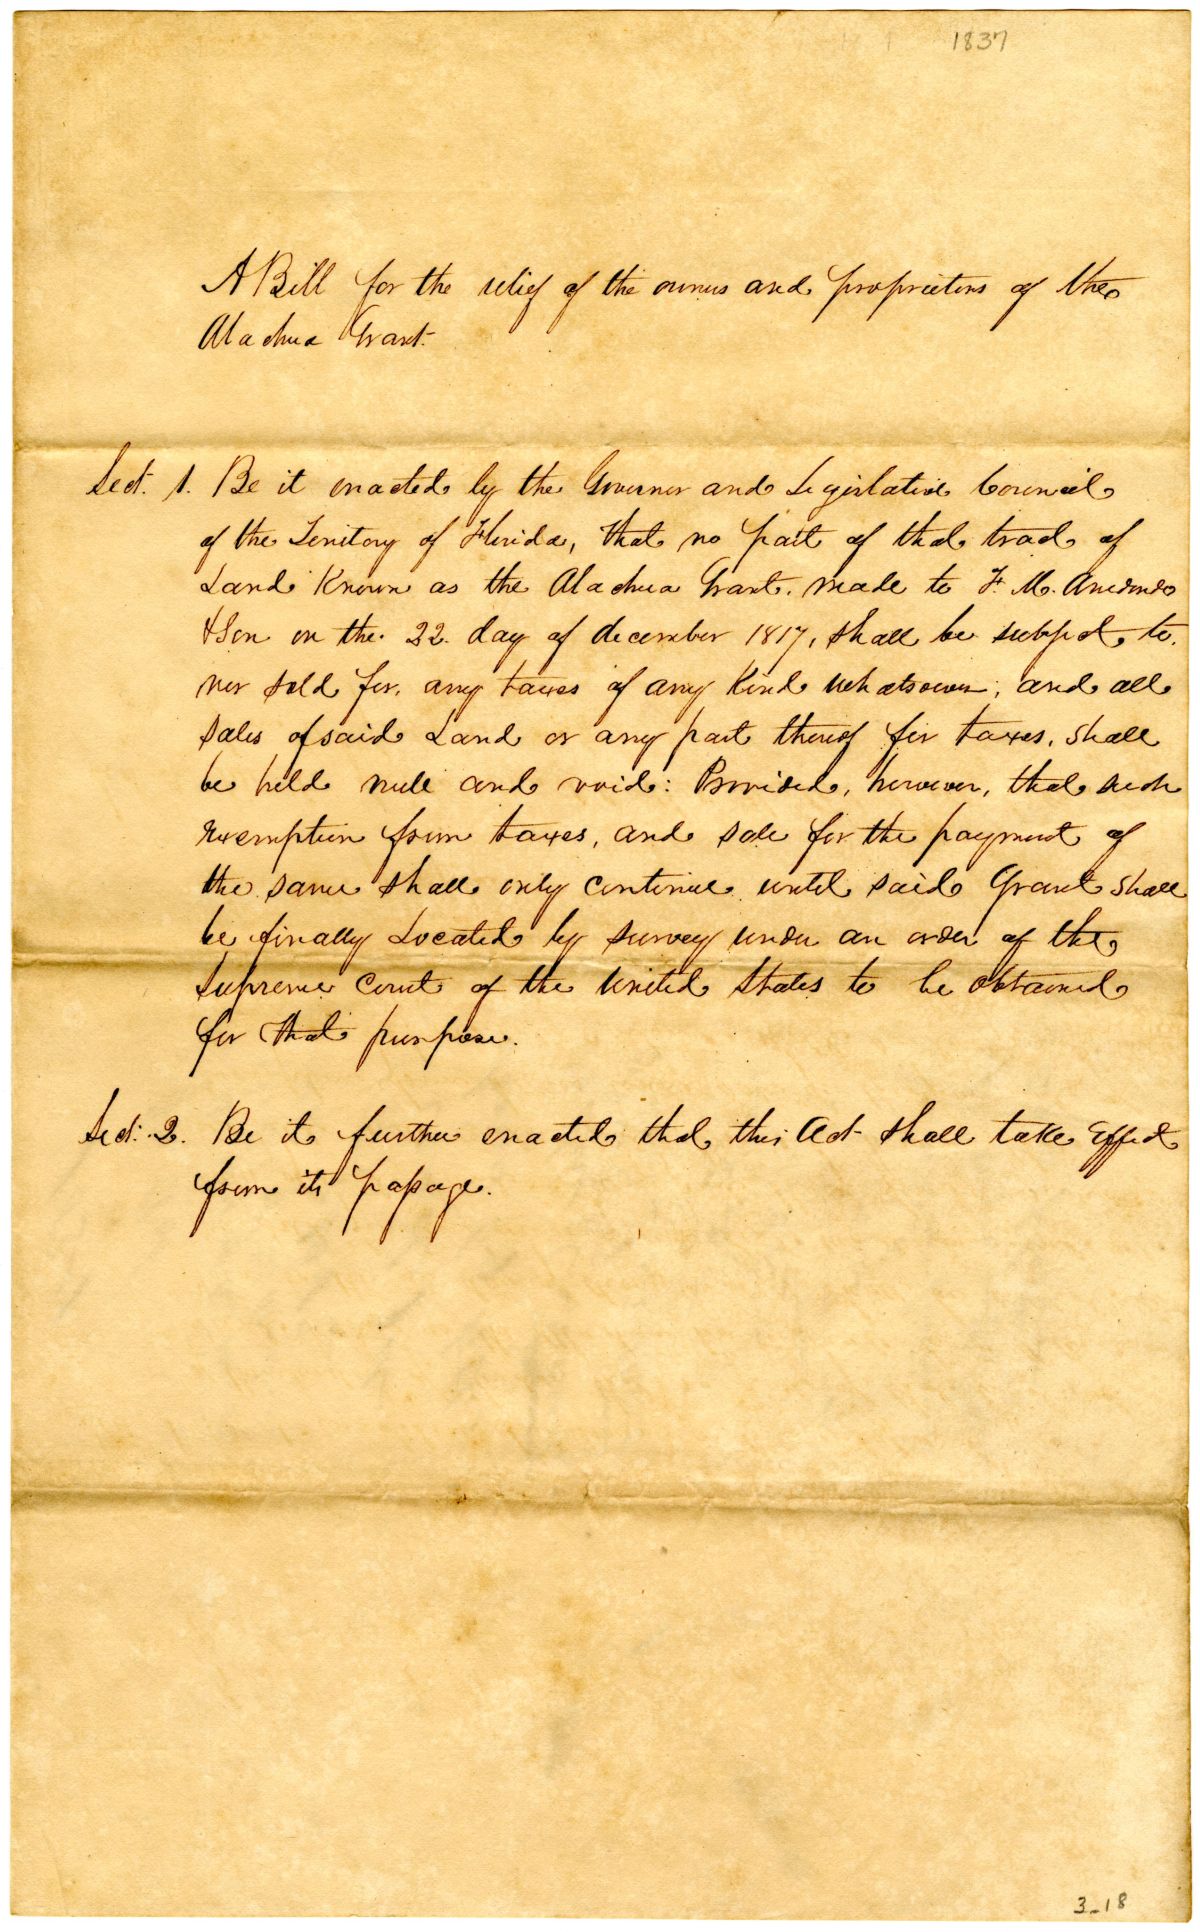 1837
A Bill for the relief of the owners and proprietors of the
Alachua Grant.
Sect. 1. Be it enacted by the Governor and Legislative Council
of the Territory of Florida, that no part of that tract of
Land Known as the Alachua Grant. made to F. M. Arredondo
& Son on the 22. day of december 1817, shall be subject to.
nor sold for, any taxes of any Kind whatsoever; and all
sales of said Land or any part thereof for taxes, shall
be held null and void: Provided, however, that such
exemption from taxes, and sale for the payment of
the same shall only continue until said Grant shall
be finally Located by survey under an order of the
Supreme Court of the United States to be obtained
for that purpose.
Sect. 2. Be it further enacted that this Act shall take Effect
from its passage.
3-18